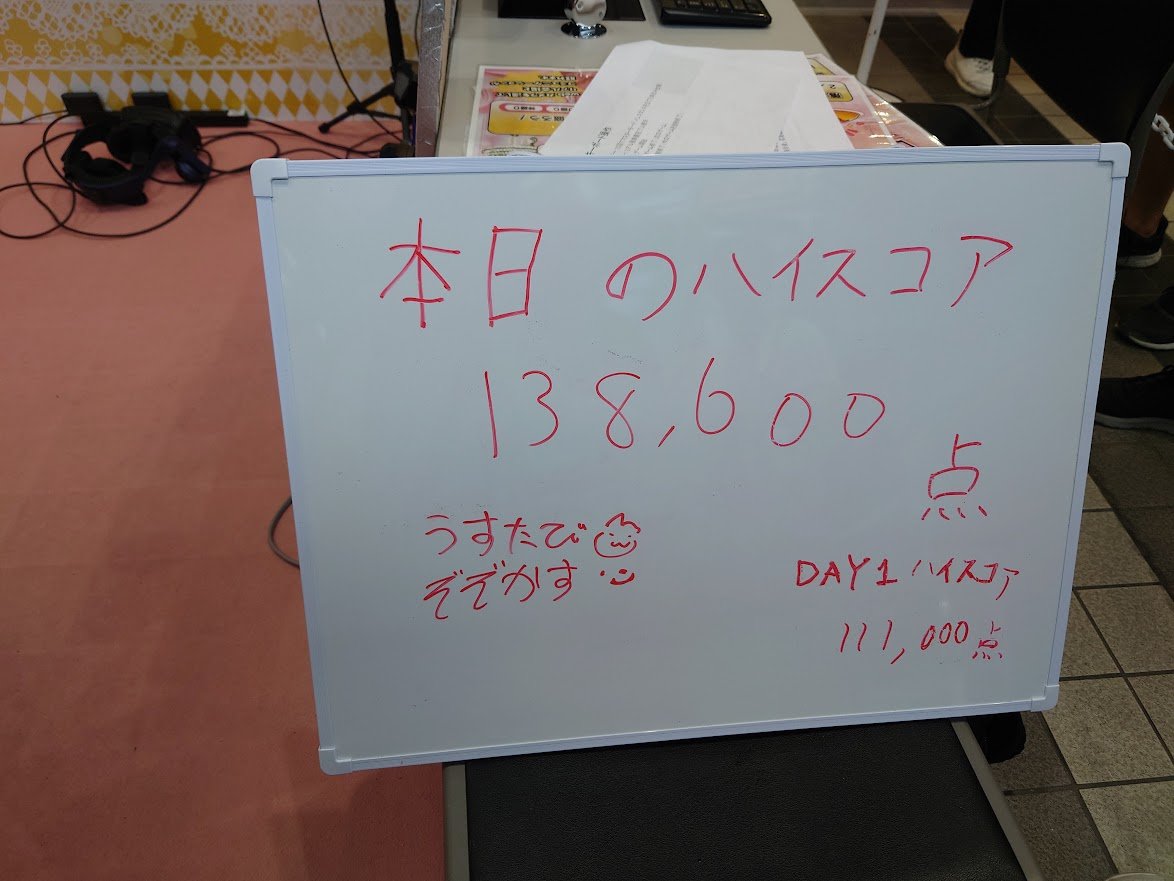 本日のハイスコア
138,600
点
うすたび
ぞぞかす
DAY1 ハイスコア
111,000点